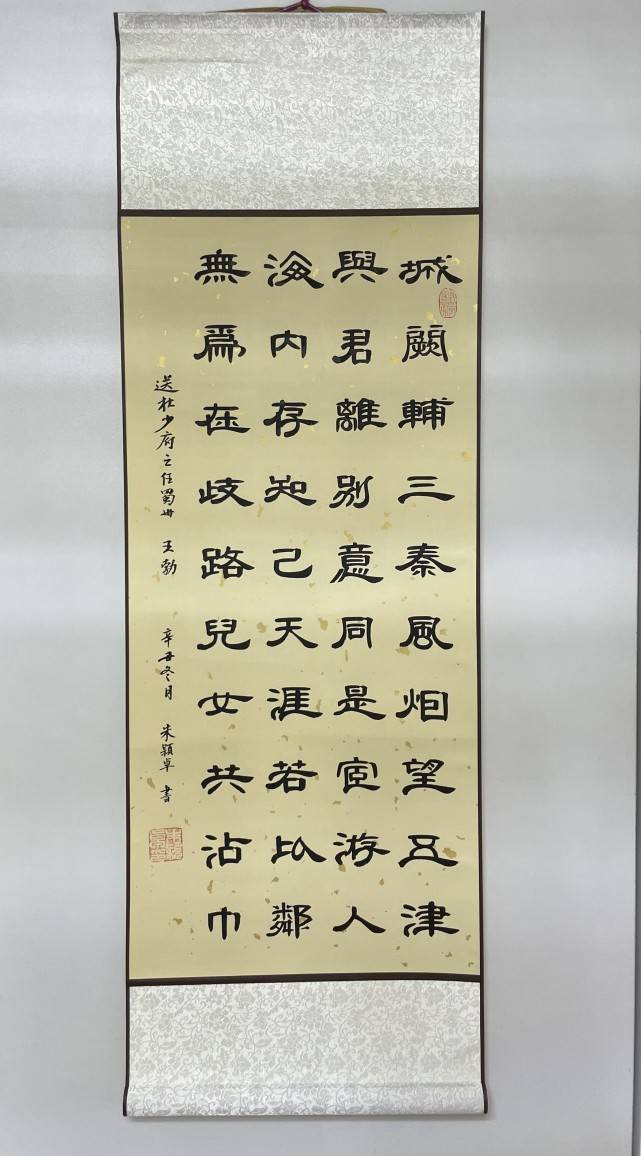 城闕輔三秦風烟望五津
與君離別意同是宦游人
海内存知己天涯若比鄰
無爲在歧路兒女共沾巾
送杜少府之任蜀州 王勃 辛丑冬月 朱穎卓 書